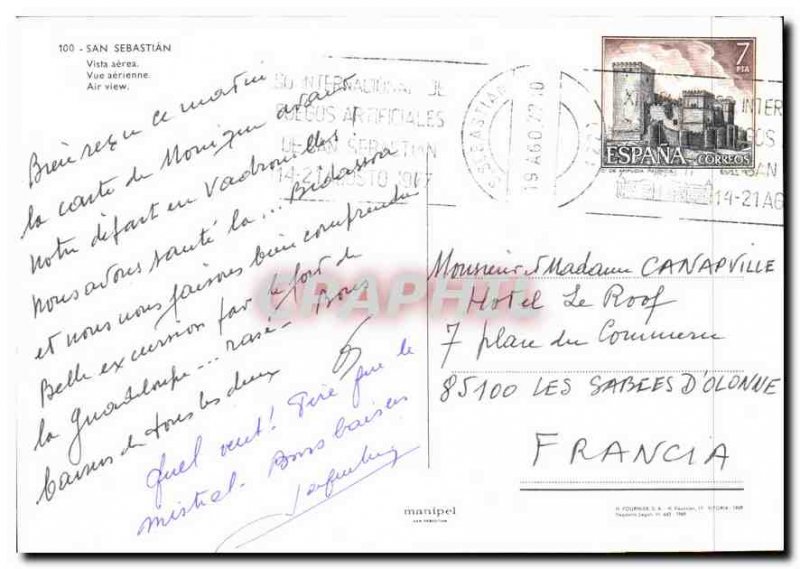 100 - SAN SEBASTIÁN
Vista aérea.
Vue aérienne.
Air view.
Bien reçu ce matin
la carte de avant
notre départ en Vadrouilles
nous avons sauté la... Bidassoa
et nous nous faisons bien comprendre
Belle excursion par le fort de
la Guadeloupe... rasé - Bons
baisers de tous les deux
Quel vent! Pire que le
mistral. Bons baisers
INTERNACIONAL DE
FUEGOS ARTIFICIALES
DE SAN SEBASTIAN
14-21 AGOSTO
S. SEBASTIAN
19 AGO
7
PTA
ESPAÑA CORREOS
INTER
SAN
14-21 AG
Monsieur & Madame CANAPVILLE
Hotel Le Roof
7 place du Commerce
85100 LES SABLES D'OLONNE
FRANCIA
CPAPHIL
manipel
SAN SEBASTIAN
H. FOURNIER S.A.